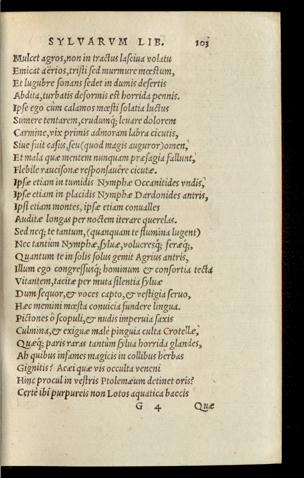 SYLVARVM LIB. 103
Mulcet agros, non in tractus lasciua volatu
Emicat aërios, tristi sed murmure mœstum,
Et lugubre sonans sedet in dumis desertis
Abdita, turbatis deformis est horrida pennis.
Ipse ego cùm calamos mœsti solatia luctus
Sumere tentarem, erudumq; leuare dolorem
Carmine, vix primis admoram labra cicutis,
Siue fuit casus, seu (quod magis auguror) omen,
Et mala quæ mentem nunquam præsagia fallunt,
Flebile raucisonæ responsauêre cicutæ.
Ipsæ etiam in tumidis Nymphæ Oceanitides vndis,
Ipsæ etiam in placidis Nymphæ Dardonides antris,
Ipsi etiam montes, ipsæ etiam conualles
Auditæ longas per noctem iterare querelas.
Sed neq; te tantum, (quanquam te flumina lugent)
Nec tantùm Nymphæ, syluæ, volucresq; feræq;,
Quantum te in solis solus gemit Agrius antris,
Illum ego congressusq; hominum & consortia tecta
Vitantem, tacitæ per muta silentia syluæ
Dum sequor, & voces capto, & vestigia seruo,
Hæc memini mœsta conuicia fundere lingua.
Pictones ô scopuli, & nudis imperuia saxis
Culmina, & exiguæ malè pinguia culta Crotellæ,
Quæq; paris raras tantùm sylua horrida glandes,
Ah quibus infames magicis in collibus herbas
Gignitis? Acæi quæ vis occulta veneni
Hinc procul in vestris Ptolemæum detinet oris?
Certè ibi purpureis non Lotos aquatica baccis
G 4 Quæ